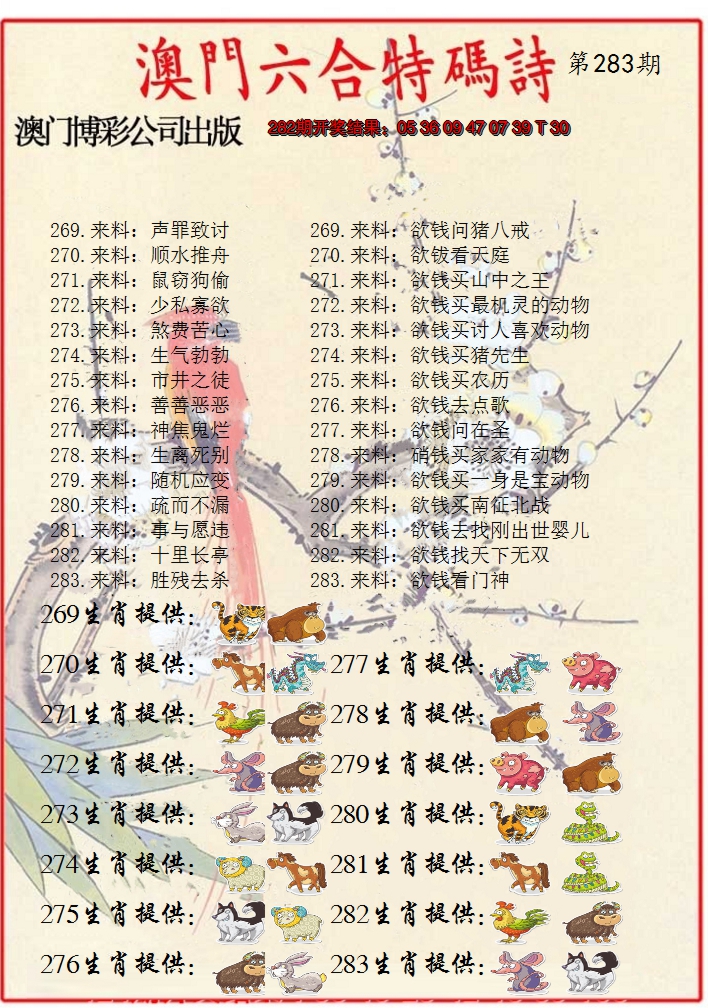 澳門六合特碼詩 第283期
澳门博彩公司出版 282期开奖结果：05 36 09 47 07 39 T 30
269.来料：声罪致讨 269.来料：欲钱问猪八戒
270.来料：顺水推舟 270.来料：欲钹看天庭
271.来料：鼠窃狗偷 271.来料：欲钱买山中之王
272.来料：少私寡欲 272.来料：欲钱买最机灵的动物
273.来料：煞费苦心 273.来料：欲钱买讨人喜欢动物
274.来料：生气勃勃 274.来料：欲钱买猪先生
275.来料：市井之徒 275.来料：欲钱买农历
276.来料：善善恶恶 276.来料：欲钱去点歌
277.来料：神焦鬼烂 277.来料：欲钱问在圣
278.来料：生离死别 278.来料：硝钱买家家有动物
279.来料：随机应变 279.来料：欲钱买一身是宝动物
280.来料：疏而不漏 280.来料：欲钱买南征北战
281.来料：事与愿违 281.来料：欲钱去找刚出世婴儿
282.来料：十里长亭 282.来料：欲钱找天下无双
283.来料：胜残去杀 283.来料：欲钱看门神
269生肖提供：
270生肖提供： 277生肖提供：
271生肖提供： 278生肖提供：
272生肖提供： 279生肖提供：
273生肖提供： 280生肖提供：
274生肖提供： 281生肖提供：
275生肖提供： 282生肖提供：
276生肖提供： 283生肖提供：